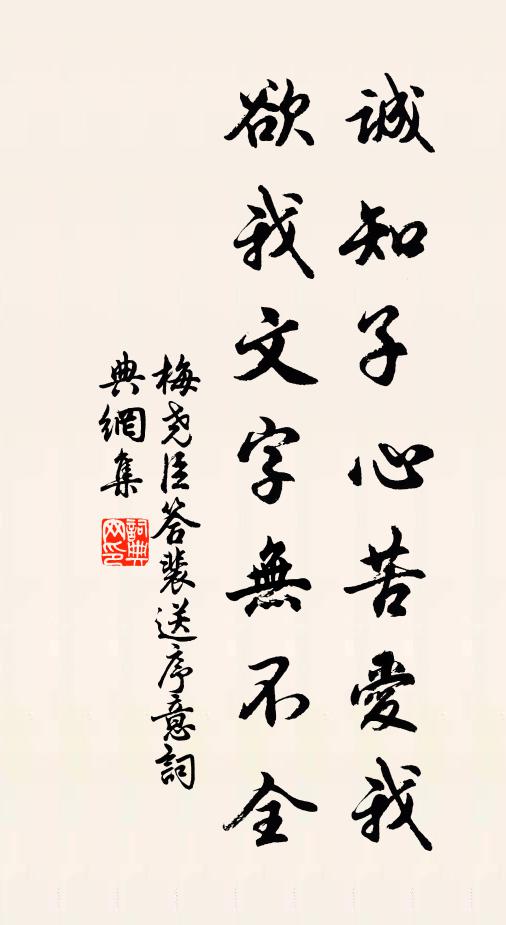 誠知子心苦愛我
欲我文字無不全
梅尧臣答裴送序意詞
典網集
詞典网印